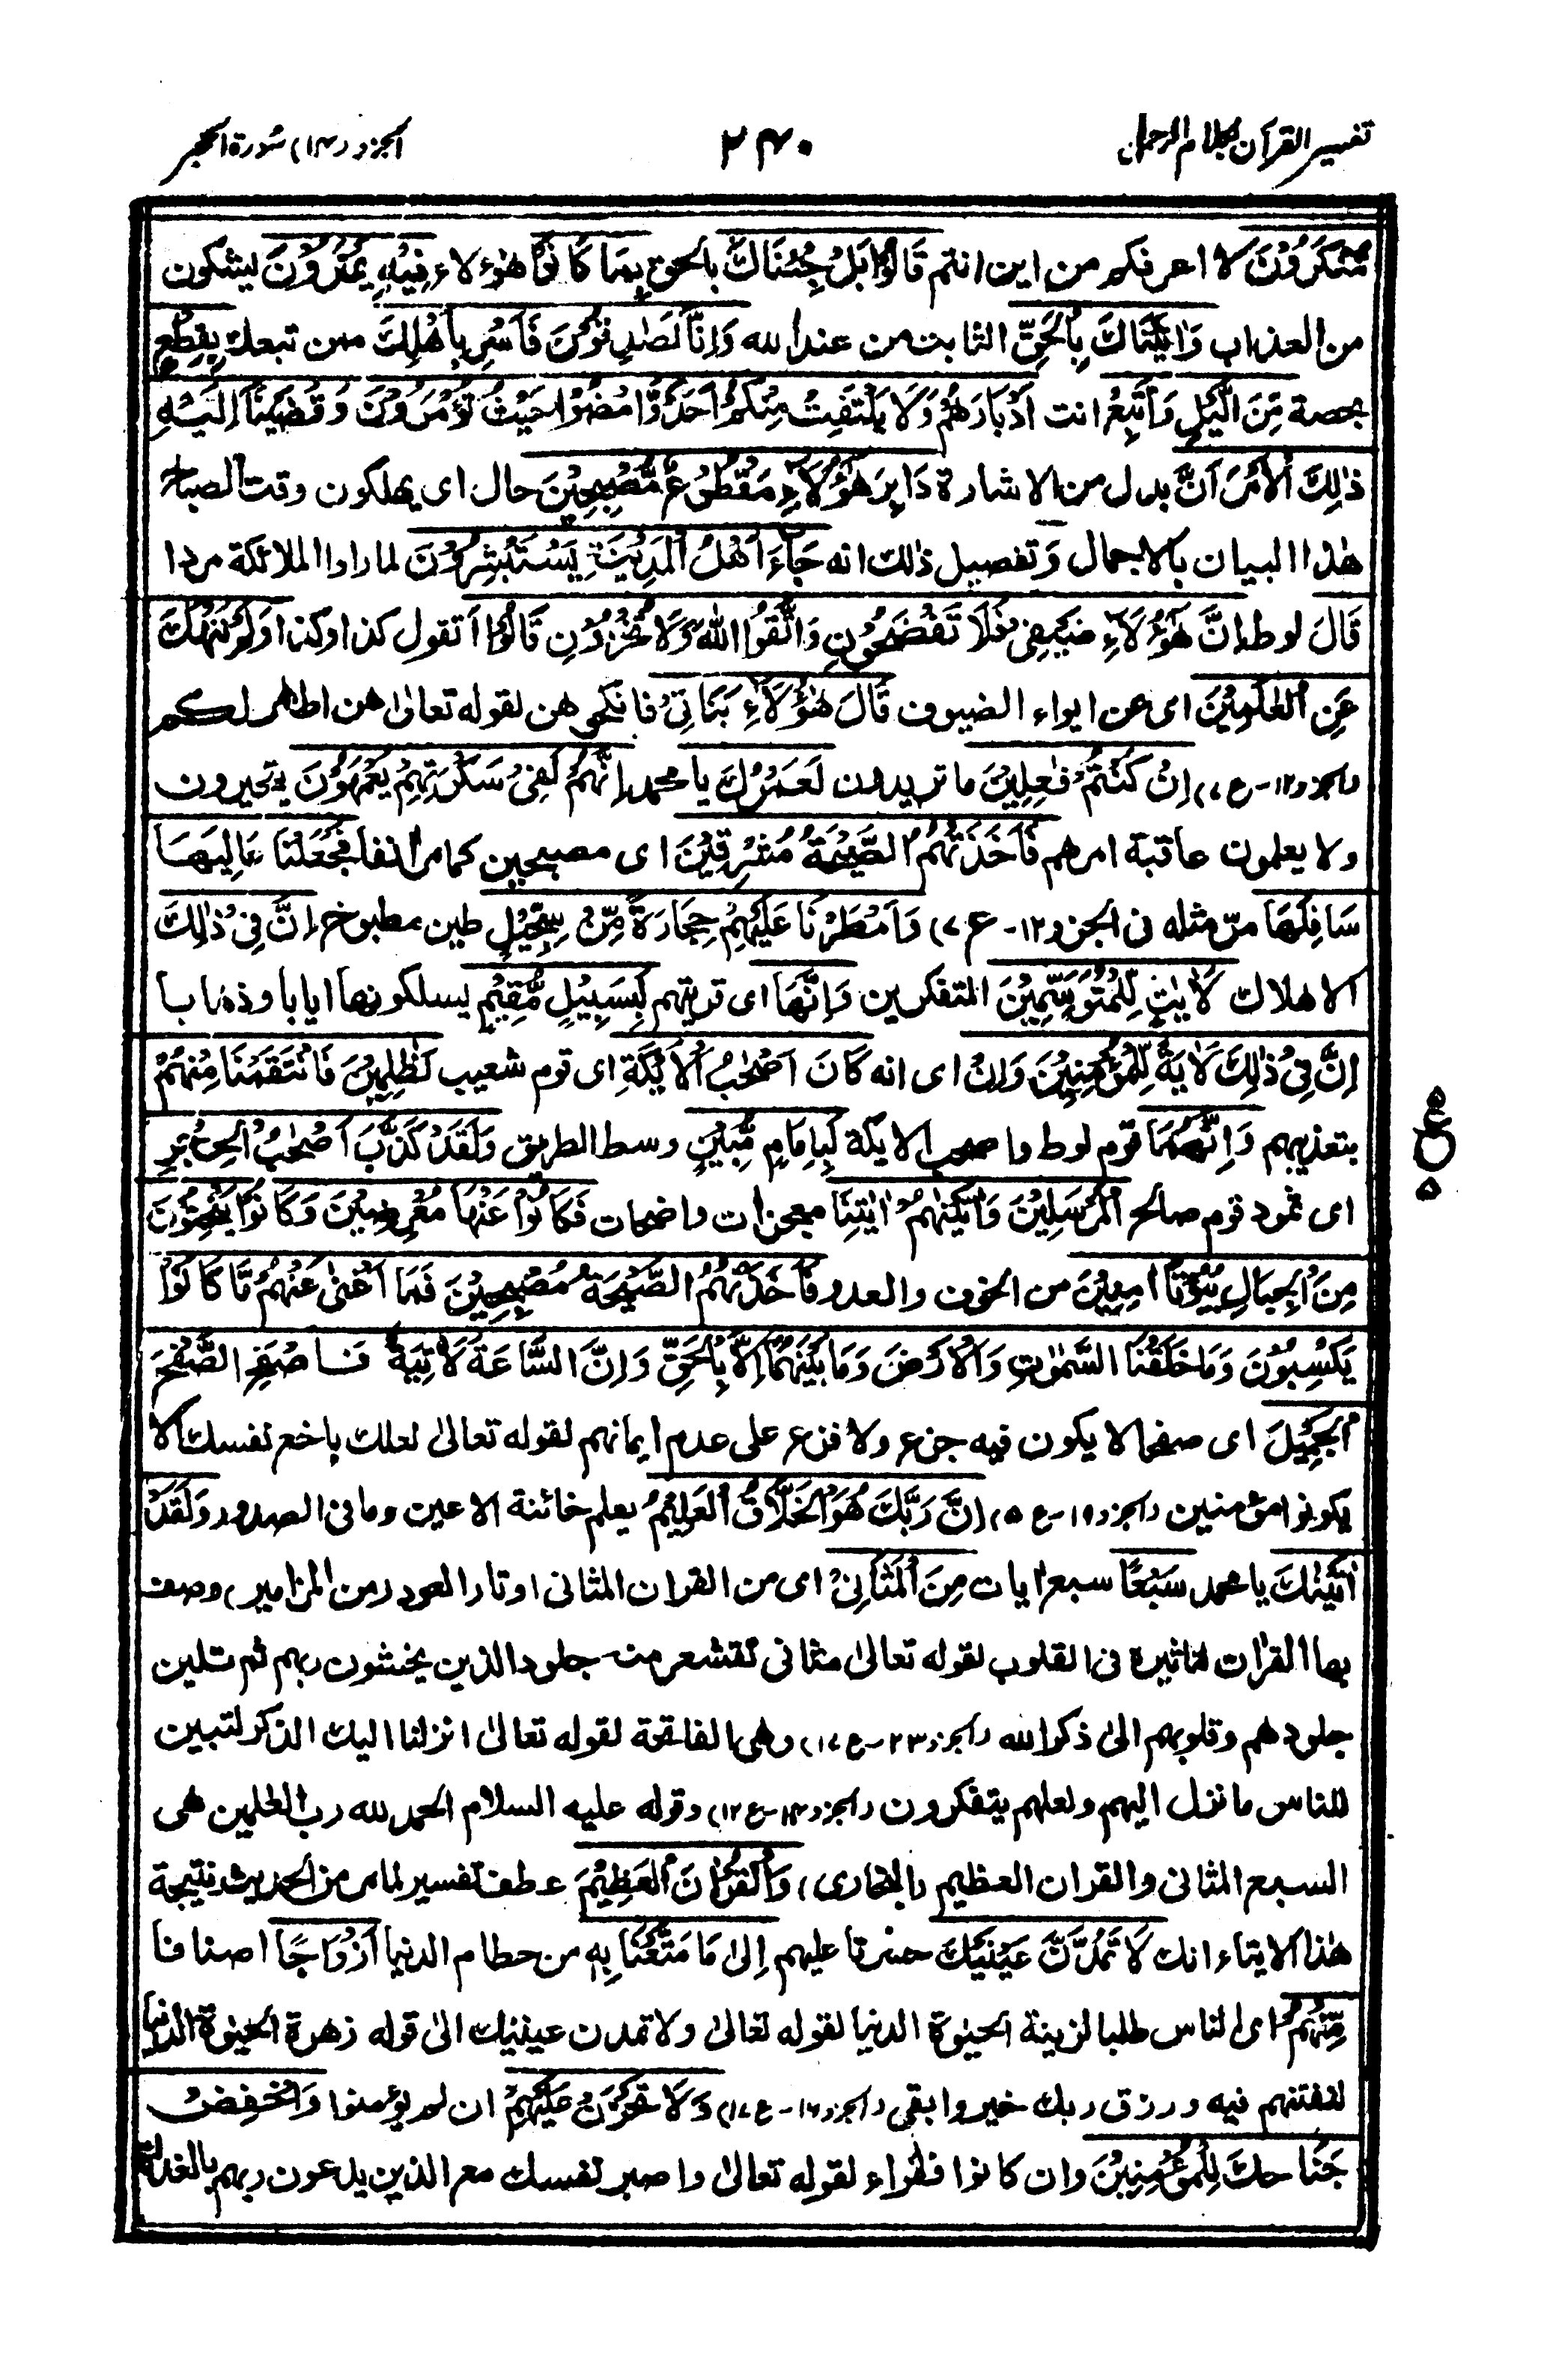 تفسير القرآن بكلام الرحمان
٢٤٠
الجزو (١٤) سورة الحجر
مُّنْكَرُوْنَ لا اعرفكم من اين انتم قَالُوْا بَلْ جِئْنَاكَ بالحق بِمَا كَانُوْا هؤلاء فِيْهِ يَمْتَرُوْنَ يشكون
من العذاب وَاٰتَيْنَاكَ بِالْحَقِّ الثابت من عند الله وَاِنَّا لَصٰدِقُوْنَ فَاَسْرِ بِاَهْلِكَ ممن تبعك بِقِطْعٍ
بحصة مِّنَ الَّيْلِ وَاتَّبِعْ انت اَدْبَارَهُمْ وَلَا يَلْتَفِتْ مِنْكُمْ اَحَدٌ وَّامْضُوْا حَيْثُ تُؤْمَرُوْنَ وَقَضَيْنَا اِلَيْهِ
ذٰلِكَ الْاَمْرَ اَنَّ بدل من الاشارة دَابِرَ هٰٓؤُلَاۤءِ مَقْطُوْعٌ مُّصْبِحِيْنَ حال اى يهلكون وقت الصباح
هٰذا البيان بالاجمال وَ تفصيل ذلك انه جَآءَ اَهْلُ الْمَدِيْنَةِ يَسْتَبْشِرُوْنَ لما راوا الملائكة مردا
قَالَ لوط اِنَّ هٰٓؤُلَاۤءِ ضَيْفِىْ فَلَا تَفْضَحُوْنِ وَاتَّقُوا اللهَ وَلَا تُخْزُوْنِ قَالُوْٓا اَتقول كذا وكذا وَلَمْ نَنْهَكَ
عَنِ الْعٰلَمِيْنَ اى عن ايواء الضيوف قَالَ هٰٓؤُلَاۤءِ بَنَاتِىْ فانكحوهن لقوله تعالىٰ هن اطهر لكم
(الجزو ١٢- ع ٧) اِنْ كُنْتُمْ فٰعِلِيْنَ ما تريدون لَعَمْرُكَ يا محمد اِنَّهُمْ لَفِىْ سَكْرَتِهِمْ يَعْمَهُوْنَ يتحيرون
ولا يعلمون عاقبة امرهم فَاَخَذَتْهُمُ الصَّيْحَةُ مُشْرِقِيْنَ اى مصبحين كما مر اٰنفا فَجَعَلْنَا عَالِيَهَا
سَافِلَهَا مرّ مثله فى الجزو ١٢- ع ٧) وَاَمْطَرْنَا عَلَيْهِمْ حِجَارَةً مِّنْ سِجِّيْلٍ طين مطبوخ اِنَّ فِىْ ذٰلِكَ
الاهلاك لَاٰيٰتٍ لِّلْمُتَوَسِّمِيْنَ المتفكرين وَاِنَّهَا اى قريتهم لَبِسَبِيْلٍ مُّقِيْمٍ يسلكونها ايابا وذهابا
اِنَّ فِىْ ذٰلِكَ لَاٰيَةً لِّلْمُؤْمِنِيْنَ وَاِنْ اى انه كَانَ اَصْحٰبُ الْاَيْكَةِ اى قوم شعيب لَظٰلِمِيْنَ فَانْتَقَمْنَا مِنْهُمْ
بتعذيبهم وَاِنَّهُمَا قوم لوط واصحٰب الايكة لَبِاِمَامٍ مُّبِيْنٍ وسط الطريق وَلَقَدْ كَذَّبَ اَصْحٰبُ الْحِجْرِ
اى ثمود قوم صالح الْمُرْسَلِيْنَ وَاٰتَيْنٰهُمْ اٰيٰتِنَا معجزات واضحات فَكَانُوْا عَنْهَا مُعْرِضِيْنَ وَكَانُوْا يَنْحِتُوْنَ
مِنَ الْجِبَالِ بُيُوْتًا اٰمِنِيْنَ من الخوف والعدو فَاَخَذَتْهُمُ الصَّيْحَةُ مُصْبِحِيْنَ فَمَا اَغْنٰى عَنْهُمْ مَّا كَانُوْا
يَكْسِبُوْنَ وَمَا خَلَقْنَا السَّمٰوٰتِ وَالْاَرْضَ وَمَا بَيْنَهُمَا اِلَّا بِالْحَقِّ وَاِنَّ السَّاعَةَ لَاٰتِيَةٌ فَاصْفَحِ الصَّفْحَ
الْجَمِيْلَ اى صفحا لا يكون فيه جزع ولا فزع على عدم ايمانهم لقوله تعالىٰ لعلك باخع نفسك الا
يكونوا مؤمنين (الجزو ١٩- ع ٥) اِنَّ رَبَّكَ هُوَ الْخَلّٰقُ الْعَلِيْمُ يعلم خائنة الاعين وما فى الصدور وَلَقَدْ
اٰتَيْنٰكَ يا محمد سَبْعًا سبع اٰيات مِنَ الْمَثَانِىْ اى من القران المثانى اوتار العود (من المزامير) وصف
بها القراٰن لتاثيره فى القلوب لقوله تعالىٰ مثانى تقشعر منه جلود الذين يخشون ربهم ثم تلين
جلودهم وقلوبهم الىٰ ذكر الله (الجزو ٢٣- ع ١٧) وهى الفاتحة لقوله تعالىٰ انزلنا اليك الذكر لتبين
للناس ما نزل اليهم ولعلهم يتفكرون (الجزو ١٤- ع ١٢) وقوله عليه السلام الحمد لله رب العٰلمين هى
السبع المثانى والقران العظيم (البخارى) وَالْقُرْاٰنَ الْعَظِيْمَ عطف تفسير لما مر من الحديث ونتيجة
هٰذا الايتاء انك لَا تَمُدَّنَّ عَيْنَيْكَ حسرتا عليهم اِلىٰ مَا مَتَّعْنَا بِهٖ من حطام الدنيا اَزْوَاجًا اصنافا
مِّنْهُمْ اى الناس طلبا لزينة الحيٰوة الدنيا لقوله تعالىٰ ولا تمدن عينيك الىٰ قوله زهرة الحيٰوة الدنيا
لنفتنهم فيه ورزق ربك خير وابقى (الجزو ١٦- ع ١٧) وَلَا تَحْزَنْ عَلَيْهِمْ ان لم يؤمنوا وَاخْفِضْ
جَنَاحَكَ لِلْمُؤْمِنِيْنَ وان كانوا فقراء لقوله تعالىٰ واصبر نفسك مع الذين يدعون ربهم بالغداة
ع
٥